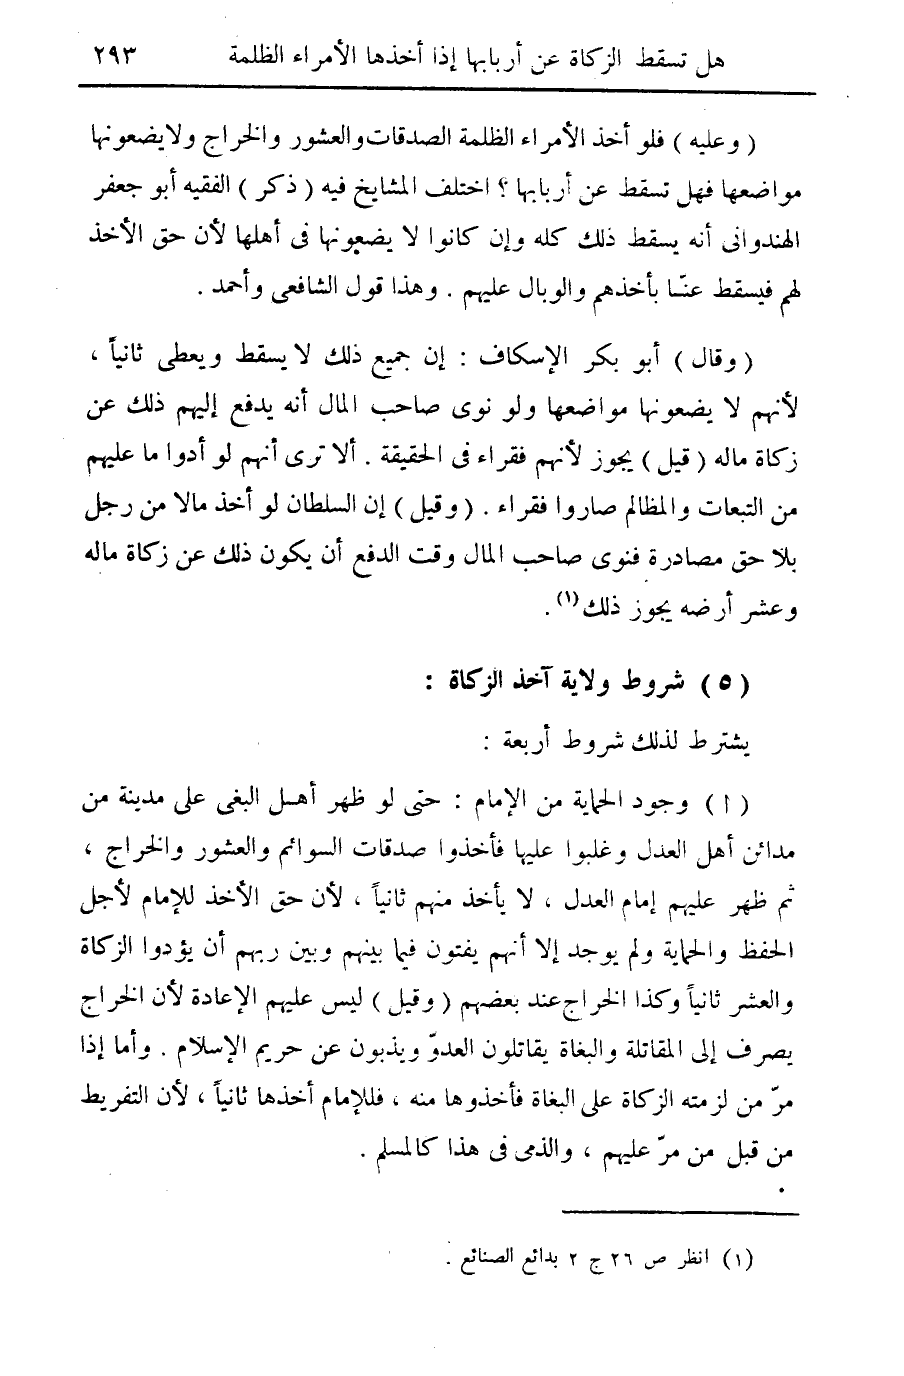 هل تسقط الزكاة عن أربابها إذا أخذها الأمراء الظلمة ٢٩٣
( وعليه ) فلو أخذ الأمراء الظلمة الصدقات والعشور والخراج ولايضعونها
مواضعها فهل تسقط عن أربابها ؟ اختلف المشايخ فيه ( ذكر ) الفقيه أبو جعفر
الهندوانى أنه يسقط ذلك كله وإن كانوا لا يضعونها فى أهلها لأن حق الأخذ
لهم فيسقط عنّا بأخذهم والوبال عليهم . وهذا قول الشافعى وأحمد .
( وقال ) أبو بكر الإسكاف : إن جميع ذلك لا يسقط ويعطى ثانياً ،
لأنهم لا يضعونها مواضعها ولو نوى صاحب المال أنه يدفع إليهم ذلك عن
زكاة ماله ( قيل ) يجوز لأنهم فقراء فى الحقيقة . ألا ترى أنهم لو أدوا ما عليهم
من التبعات والمظالم صاروا فقراء . ( وقيل ) إن السلطان لو أخذ مالا من رجل
بلا حق مصادرة فنوى صاحب المال وقت الدفع أن يكون ذلك عن زكاة ماله
وعشر أرضه يجوز ذلك (١) .
( ٥ ) شروط ولاية آخذ الزكاة :
يشترط لذلك شروط أربعة :
( ا ) وجود الحماية من الإمام : حتى لو ظهر أهل البغى على مدينة من
مدائن أهل العدل وغلبوا عليها فأخذوا صدقات السوائم والعشور والخراج ،
ثم ظهر عليهم إمام العدل ، لا يأخذ منهم ثانياً ، لأن حق الأخذ للإمام لأجل
الحفظ والحماية ولم يوجد إلا أنهم يفتون فيما بينهم وبين ربهم أن يؤدوا الزكاة
والعشر ثانياً وكذا الخراج عند بعضهم ( وقيل ) ليس عليهم الإعادة لأن الخراج
يصرف إلى المقاتلة والبغاة يقاتلون العدوّ ويذبون عن حريم الإسلام . وأما إذا
مرّ من لزمته الزكاة على البغاة فأخذوها منه ، فللإمام أخذها ثانياً ، لأن التفريط
من قبل من مرّ عليهم ، والذمى فى هذا كالمسلم .
(١) انظر ص ٢٦ ج ٢ بدائع الصنائع .